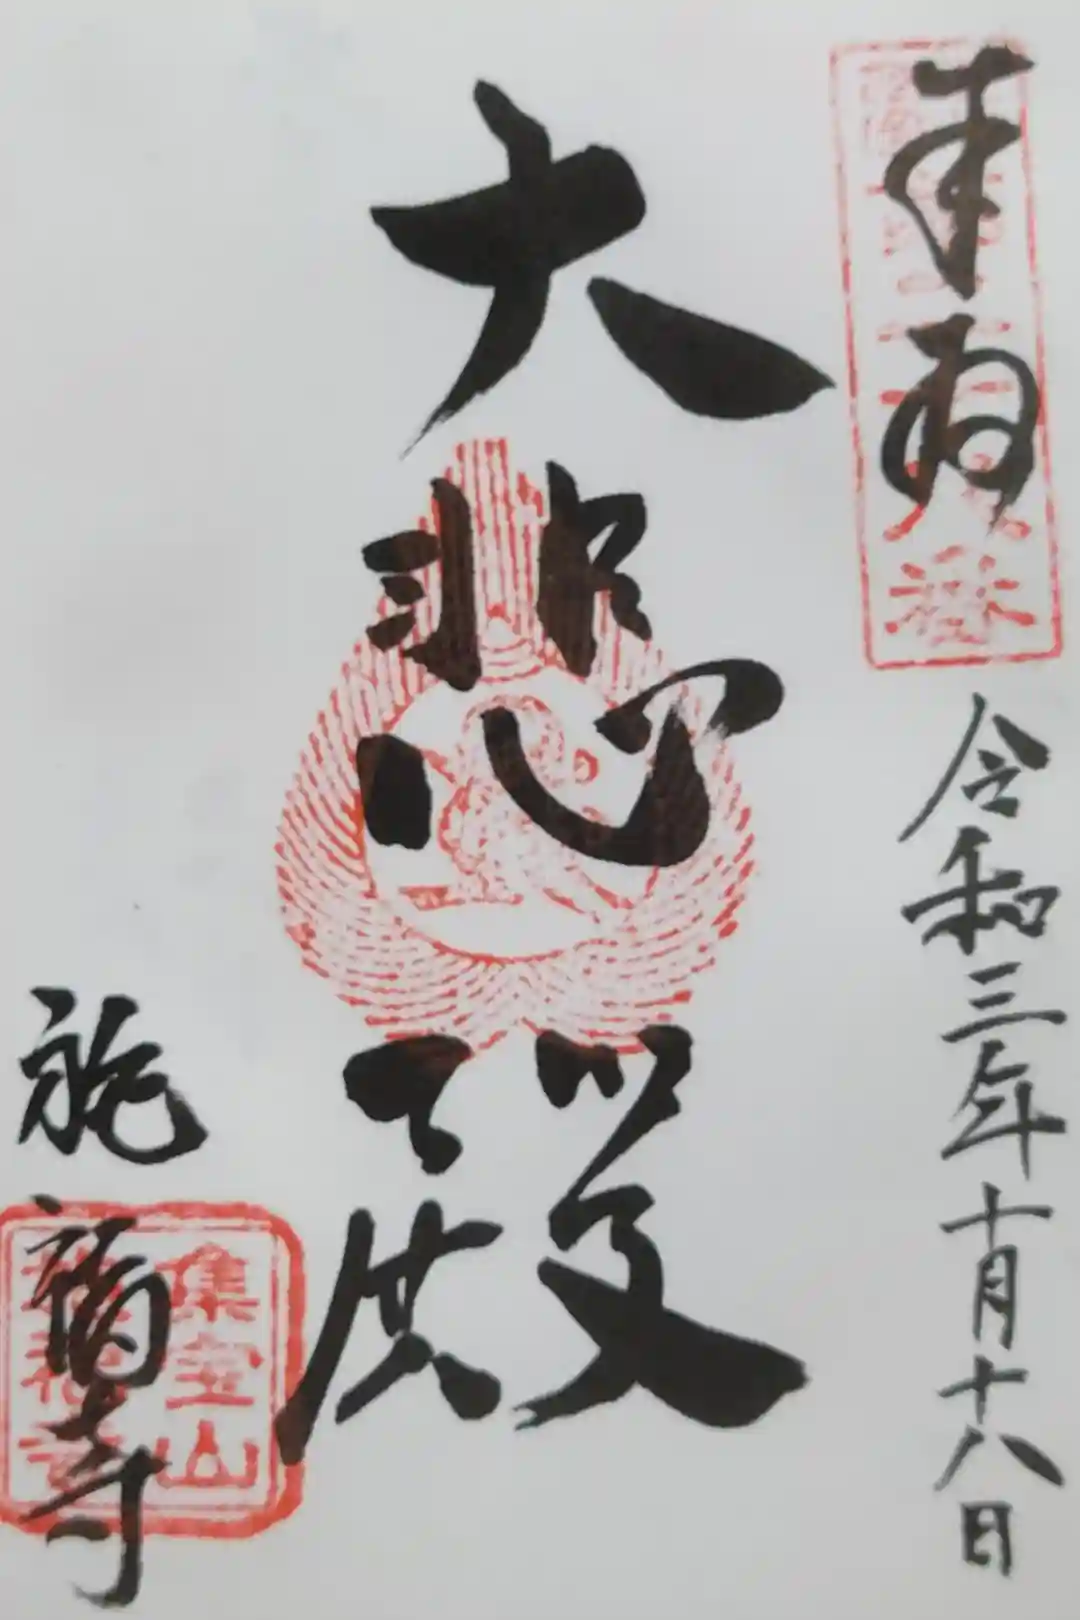 奉拝
令和三年十月十八日
大悲殿
集宝山
福寺